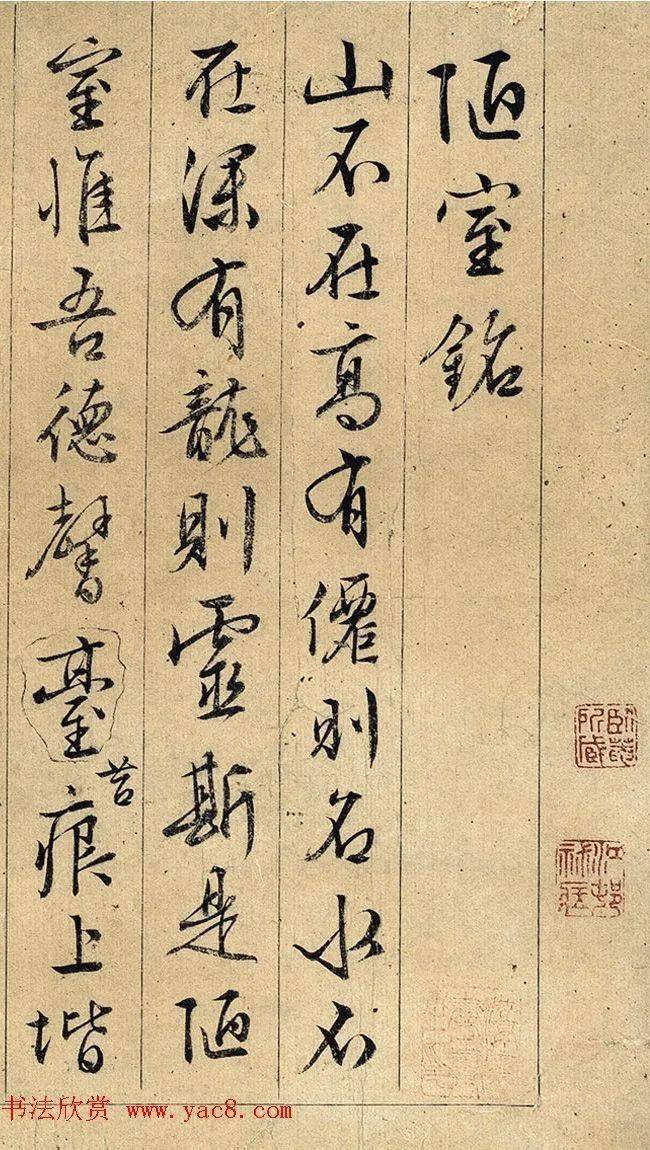 陋室銘
山不在高有僊則名水不
在深有龍則靈斯是陋
室惟吾德馨臺痕上堦
苔
书法欣赏 www.yac8.com